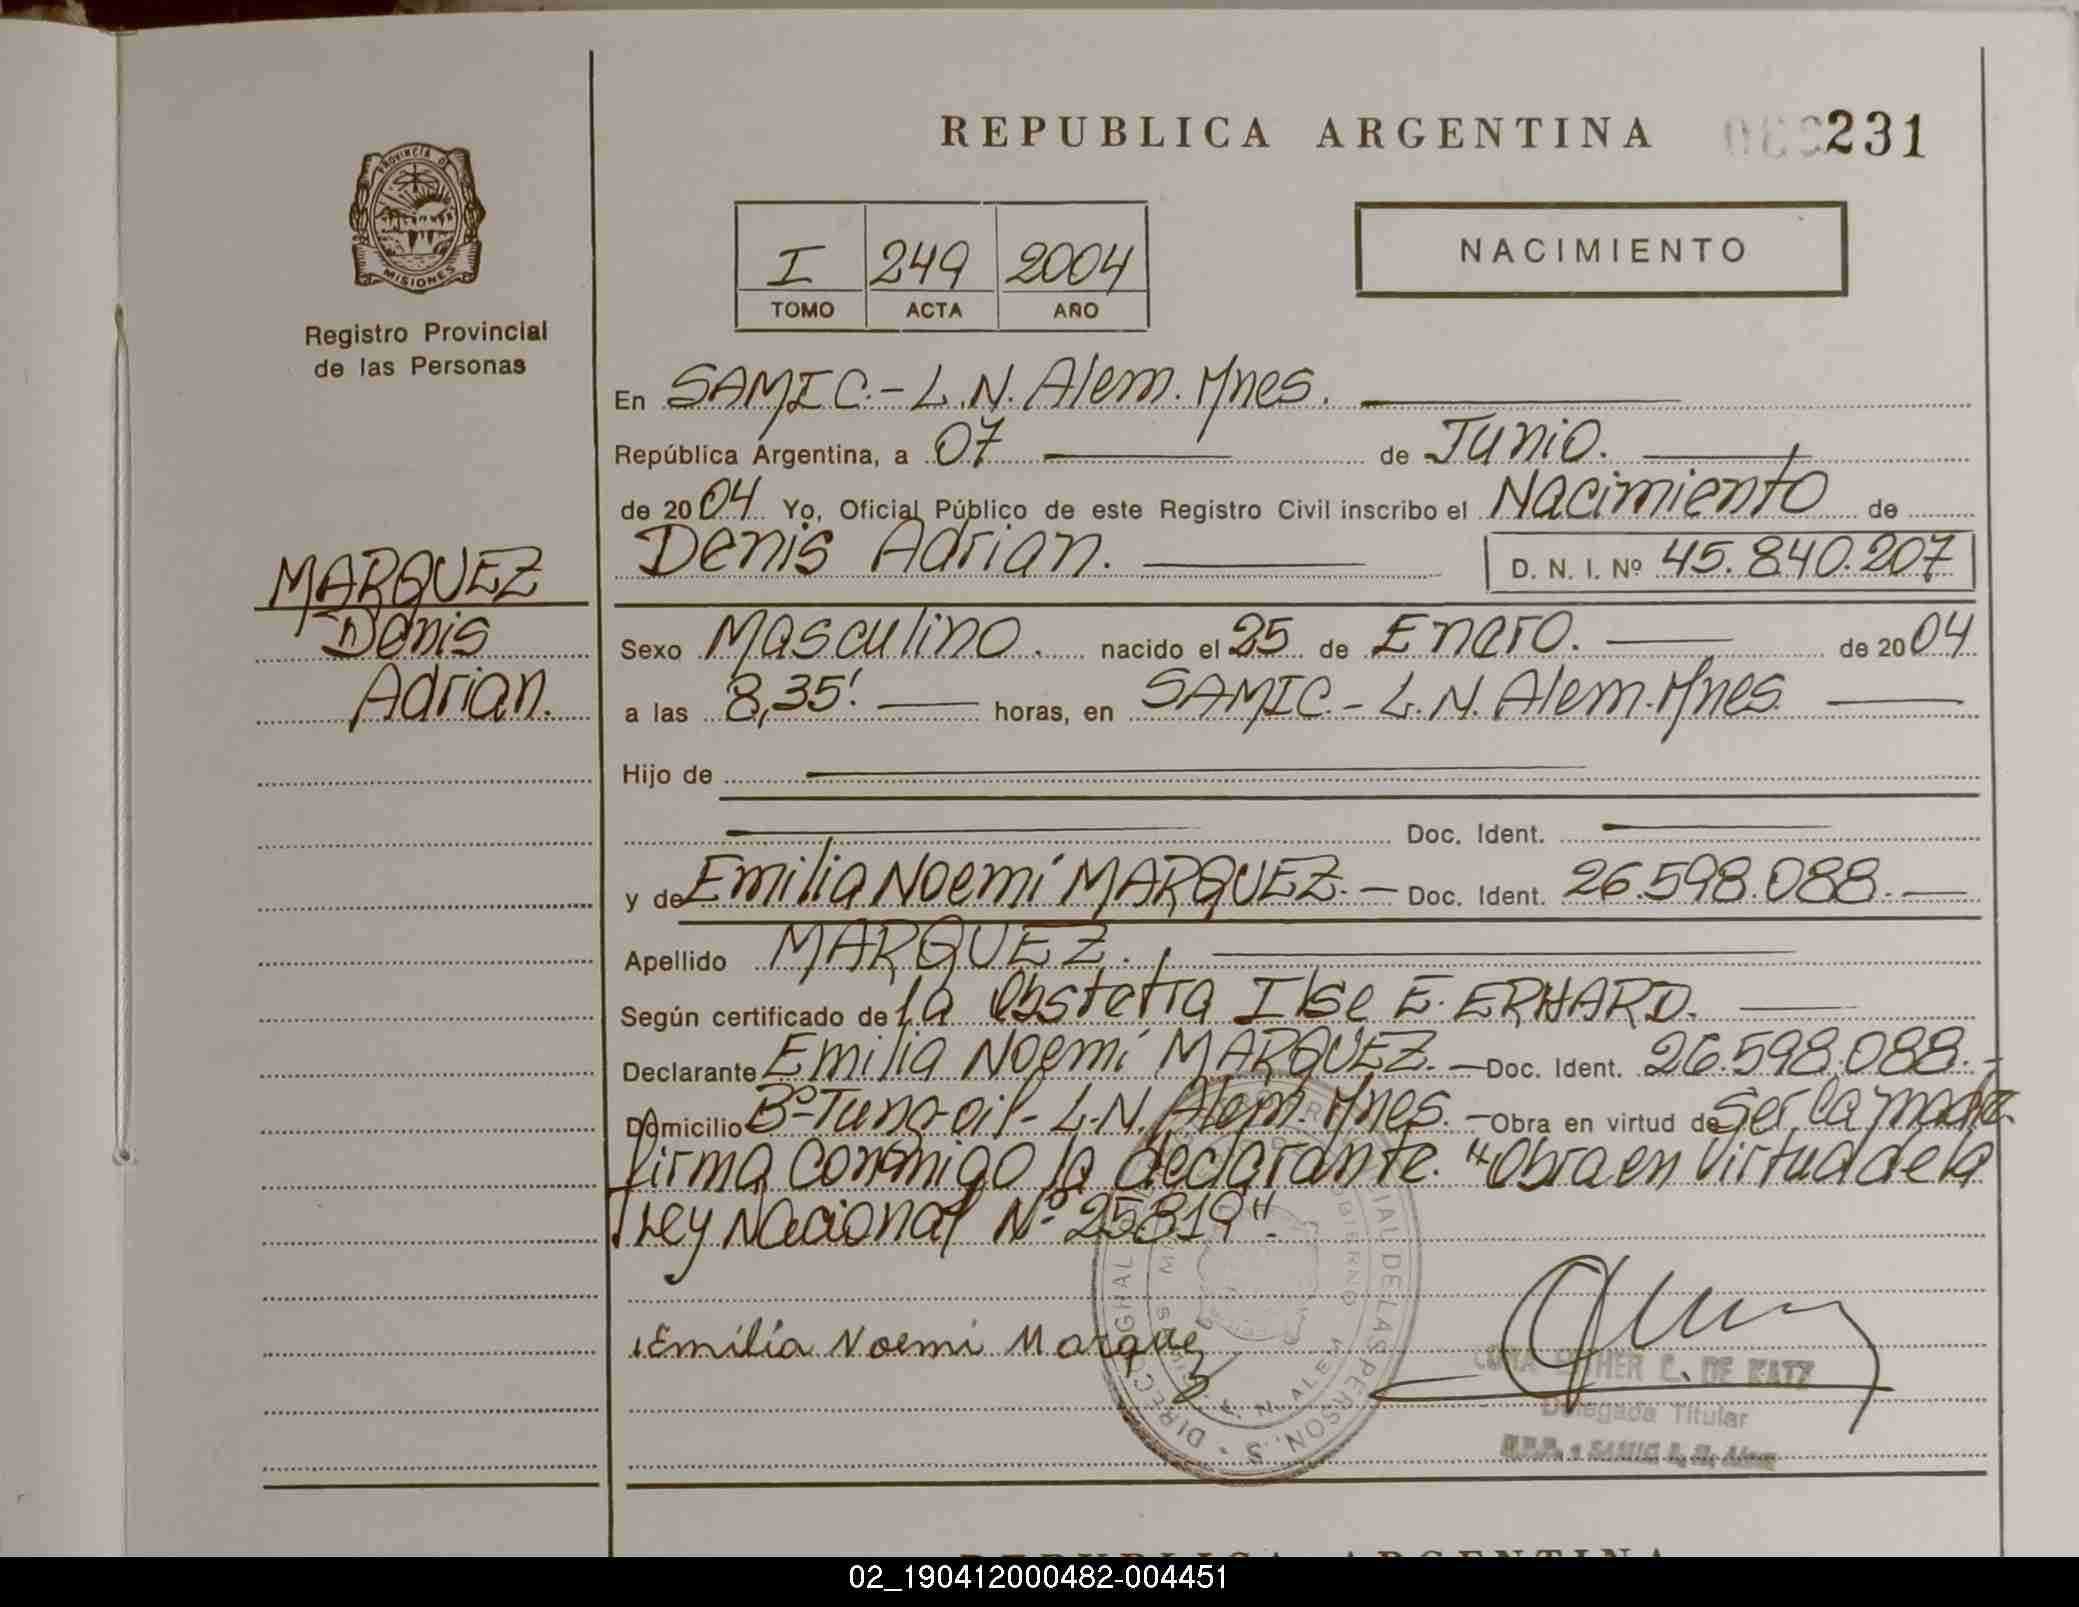 REPUBLICA ARGENTINA 231
PROVINCIA DE
MISIONES
Registro Provincial
de las Personas
I 249 2004
TOMO ACTA AÑO
NACIMIENTO
En SAMIC.- L.N. Alem. Mnes.
República Argentina, a 07 de Junio.
de 2004 Yo, Oficial Público de este Registro Civil inscribo el Nacimiento de
Denis Adrian. D. N. I. Nº 45.840.207
MARQUEZ
Denis
Adrian.
Sexo Masculino. nacido el 25 de Enero. de 2004
a las 8,35' horas, en SAMIC - L.N. Alem. Mnes
Hijo de
Doc. Ident.
y de Emilia Noemí MARQUEZ.- Doc. Ident. 26.598.088.-
Apellido MARQUEZ.
Según certificado de la Obstetra Ilse E. ERHARD.
Declarante Emilia Noemí MARQUEZ.- Doc. Ident. 26.598.088.-
Domicilio Bº-Tung-oil- L.N. Alem. Mnes. - Obra en virtud de ser la madre
firma conmigo la declarante. "Obra en virtud de la
Ley Nacional Nº 25819".
Emilia Noemi Marquez
L. N. ALEM
DE LAS PERSON.S
ESTHER C. DE KATZ
Delegada Titular
SAMIC L. N. Alem
REPUBLICA ARGENTINA
02_190412000482-004451